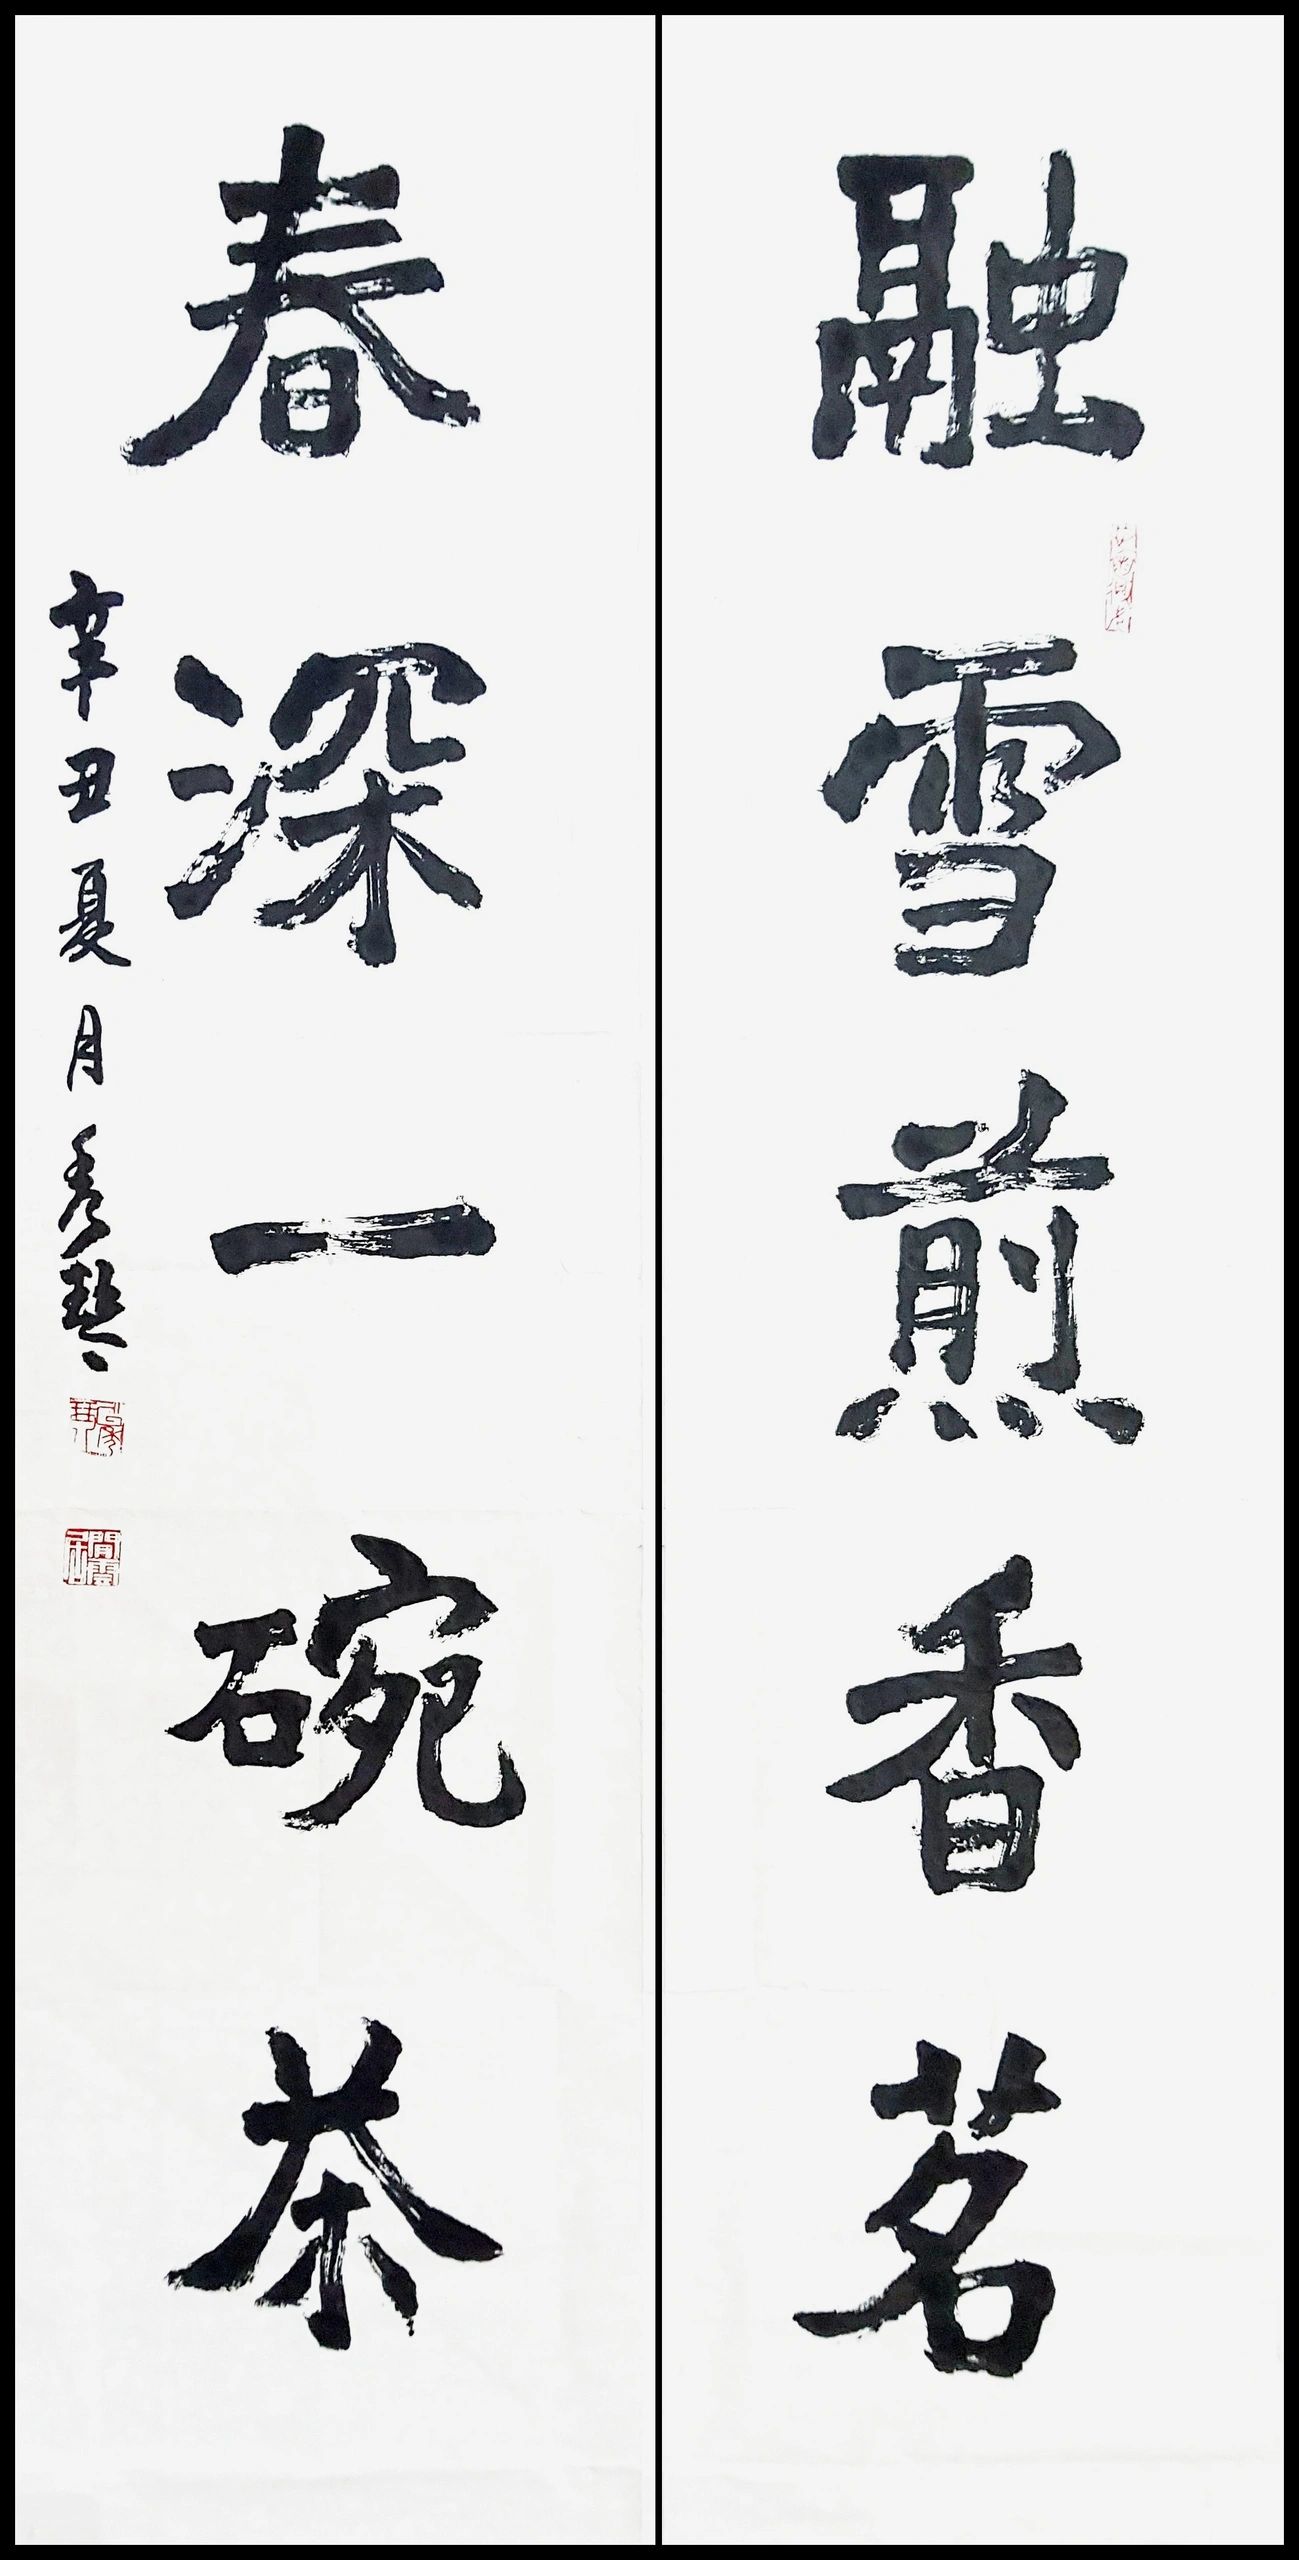 融雪煎香茗
春深一碗茶
辛丑夏月秀琴